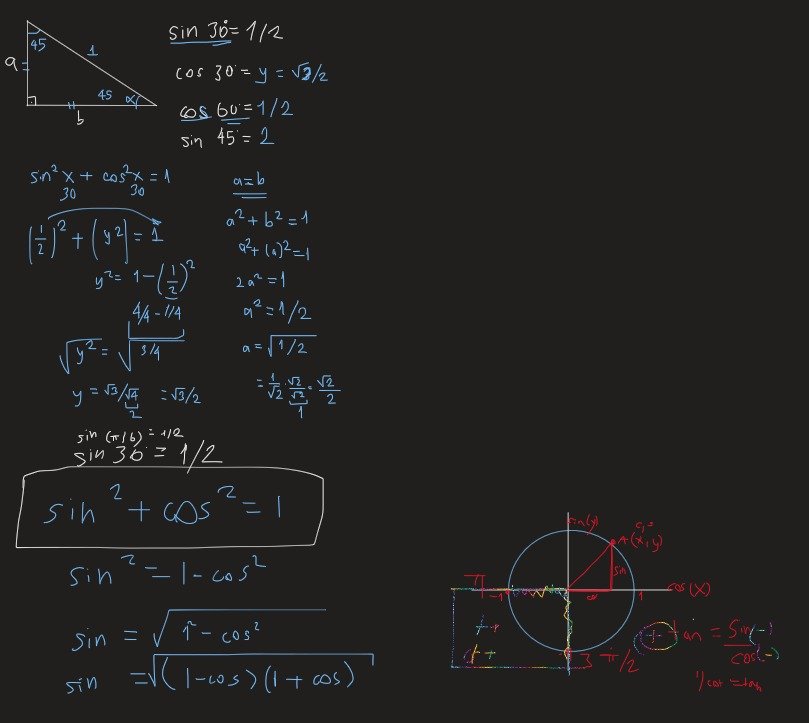 45
1
a
45 α
b
sin 30° = 1/2
cos 30° = y = √3/2
cos 60° = 1/2
sin 45° = 2
sin² x + cos² x = 1
30 30
(1/2)² + (y²) = 1
y² = 1 - (1/2)²
4/4 - 1/4
√y² = √3/4
y = √3/√4 = √3/2
2
a = b
a² + b² = 1
a² + (a)² = 1
2a² = 1
a² = 1/2
a = √1/2
= 1/√2 · √2/√2 = √2/2
1
sin (π/6) = 1/2
sin 30° = 1/2
sin² + cos² = 1
sin² = 1 - cos²
sin = √1² - cos²
sin = √(1 - cos)(1 + cos)
sin(y)
A(x, y)
sin
π -1 cos 1 cos(x)
+ +
+ +
3 π/2
(+) tan = sin(-)/cos(-)
1/cot = tan